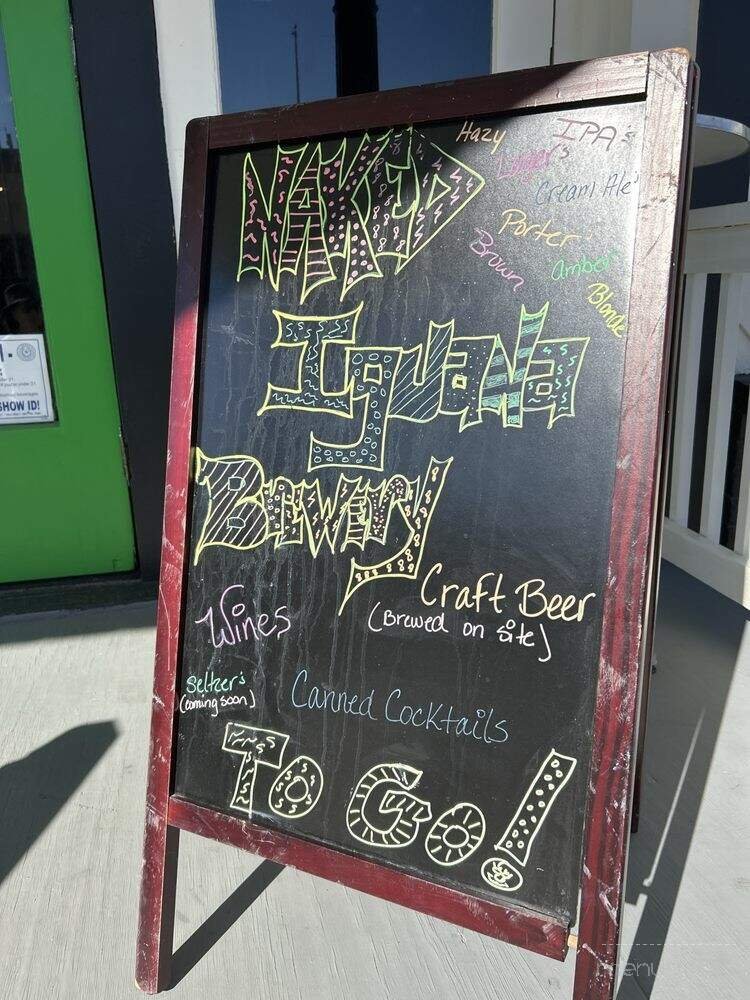 NAKED
Hazy
IPA's
Lager's
Cream Ale's
Porter
Brown
Amber
Blonde
Iguana
Brewery
Craft Beer
(Brewed on site)
Wines
Seltzer's
(coming soon)
Canned Cocktails
To Go!
SHOW ID!